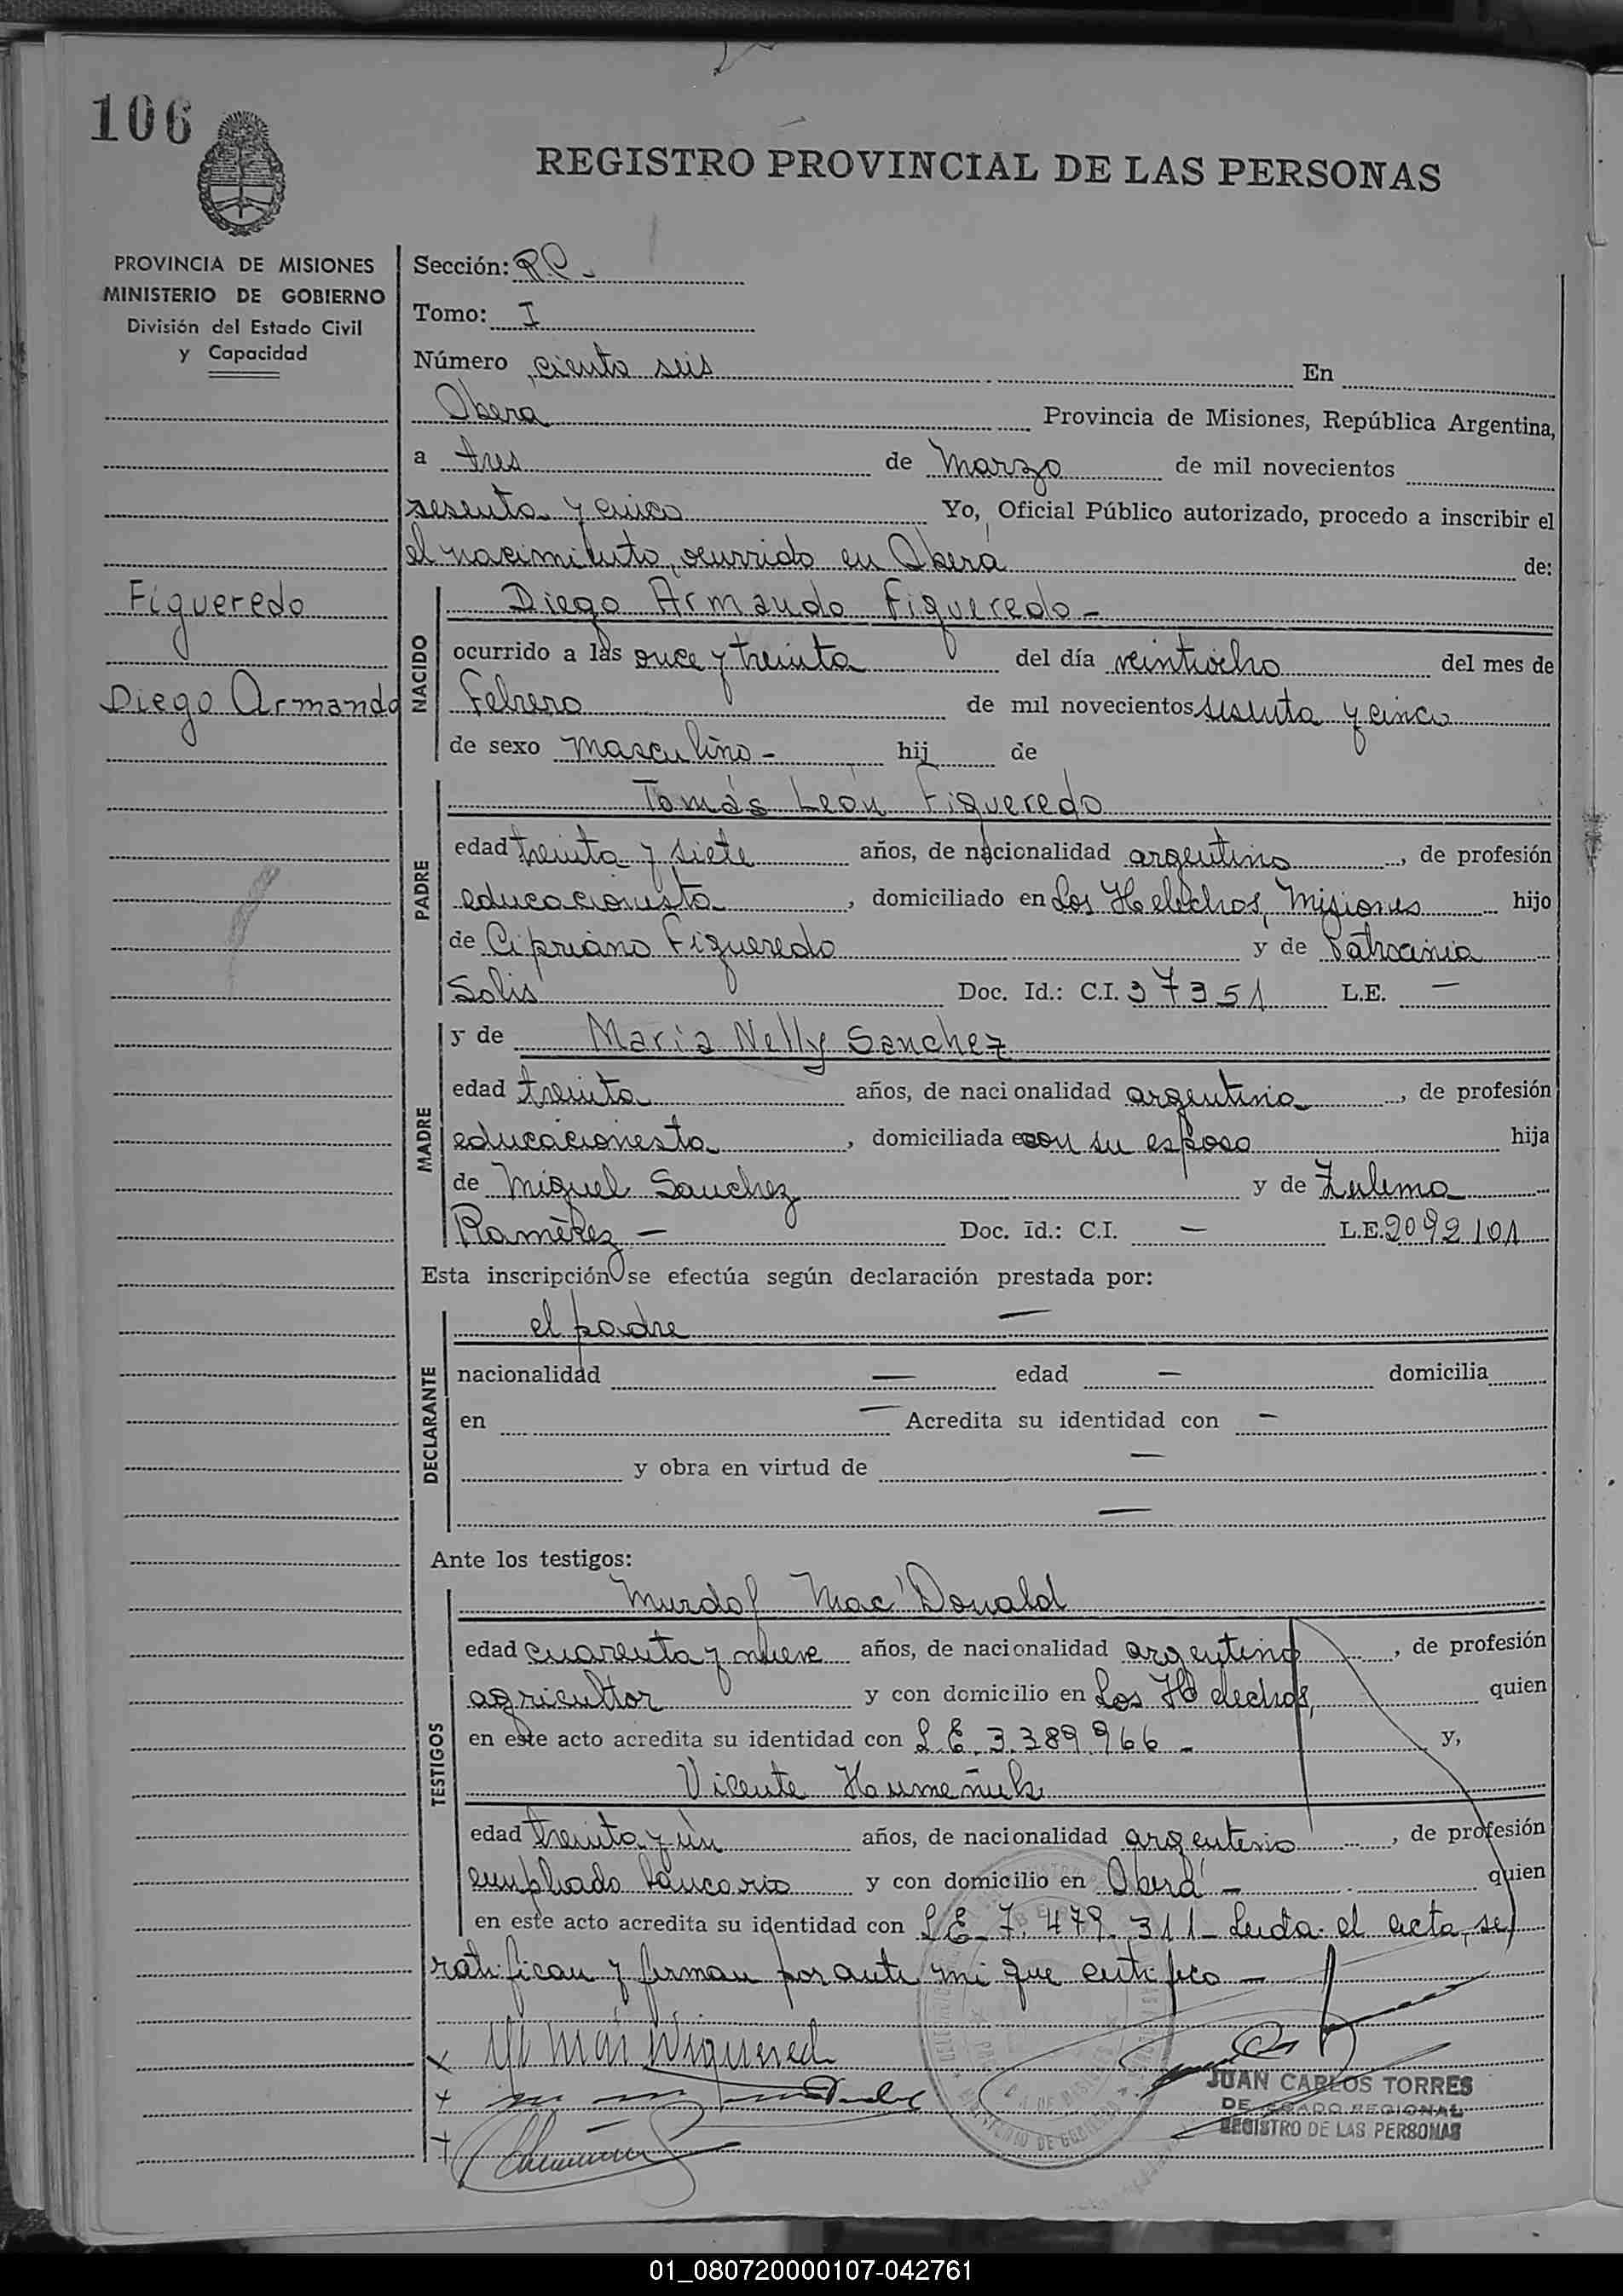 106
REGISTRO PROVINCIAL DE LAS PERSONAS
PROVINCIA DE MISIONES
MINISTERIO DE GOBIERNO
División del Estado Civil
y Capacidad
Figueredo
Diego Armando
Sección: R.P.-
Tomo: I
Número ciento seis En
Obera Provincia de Misiones, República Argentina,
a tres de Marzo de mil novecientos
sesenta y cinco Yo, Oficial Público autorizado, procedo a inscribir el
el nacimiento, ocurrido en Oberá de:
NACIDO
Diego Armando Figueredo -
ocurrido a las once y treinta del día veintiocho del mes de
Febrero de mil novecientos sesenta y cinco
de sexo masculino - hij de
PADRE
Tomás León Figueredo
edad treinta y siete años, de nacionalidad argentino, de profesión
educacionista, domiciliado en Los Helechos, Misiones hijo
de Cipriano Figueredo y de Patrocinia
Solis Doc. Id.: C.I. 37351 L.E. —
MADRE
y de Maria Nelly Sanchez
edad treinta años, de naci onalidad argentina, de profesión
educacionista, domiciliada con su esposo hija
de Miguel Sanchez y de Zulema
Ramírez — Doc. Id.: C.I. — L.E. 2092101
Esta inscripción se efectúa según declaración prestada por:
DECLARANTE
el padre —
nacionalidad — edad — domicilia
en — Acredita su identidad con —
y obra en virtud de —
—
Ante los testigos:
TESTIGOS
Murdof Mac'Donald
edad cuarenta y nueve años, de nacionalidad argentino, de profesión
agricultor y con domicilio en Los Helechos, quien
en este acto acredita su identidad con L.E. 3.389.966 - y,
Vicente Humeñuk
edad treinta y un años, de nacionalidad argentino, de profesión
empleado bancario y con domicilio en Oberá - quien
en este acto acredita su identidad con L.E. 7.479.311 - Leida el acta, se
ratifican y firman por ante mi que certifico —
JUAN CARLOS TORRES
DELEGADO REGIONAL
REGISTRO DE LAS PERSONAS
01_080720000107-042761